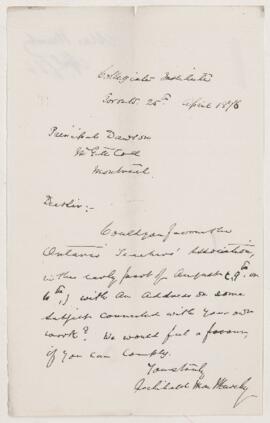 Collegiate Institute
Toronto 25th April 1876
Principal Dawson
McGill Coll
Montreal
Dear Sir:-
Could you favour the
Ontario Teachers' Association,
in the early part of August
with an address on some
subject connected with your own
work? We would feel a favour,
if you can comply.
Yours truly
Archibald MacMurchy